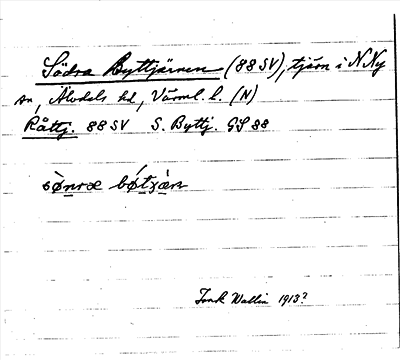 Södra Byttjärnen (88 SV), tjärn i N Ny
sn, Älvdals hd, Värml. l. (N)
Råttj. 88 SV S. Byttj. GS 88
bótxæ̀n
Wallin 1913?